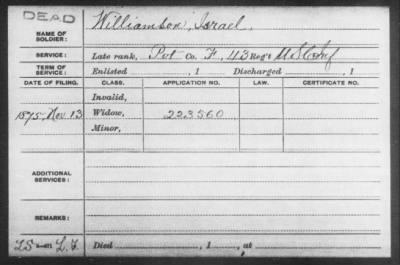 DEAD
NAME OF SOLDIER: Williamson, Israel.
SERVICE: Late rank, Pvt Co. F, 43 Reg't
TERM OF SERVICE: Enlisted , 1 Discharged , 1
DATE OF FILING. CLASS. APPLICATION NO. LAW. CERTIFICATE NO.
Invalid,
1875, Nov. 13 Widow, 223560
Minor,
ADDITIONAL SERVICES:
REMARKS:
Died , 1 , at